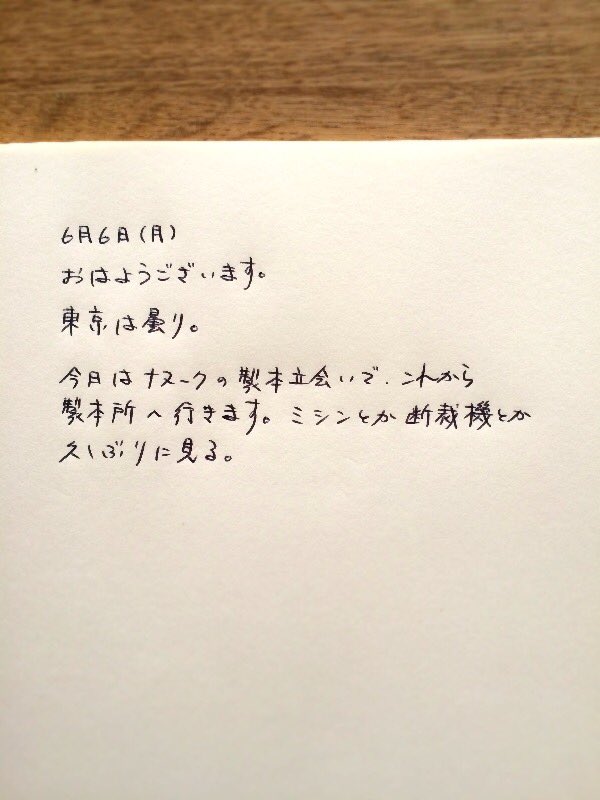 6月6日(月)
おはようございます。
東京は曇り。
今日はナヌークの製本立会いで、これから
製本所へ行きます。ミシンとか断裁機とか
久しぶりに見る。